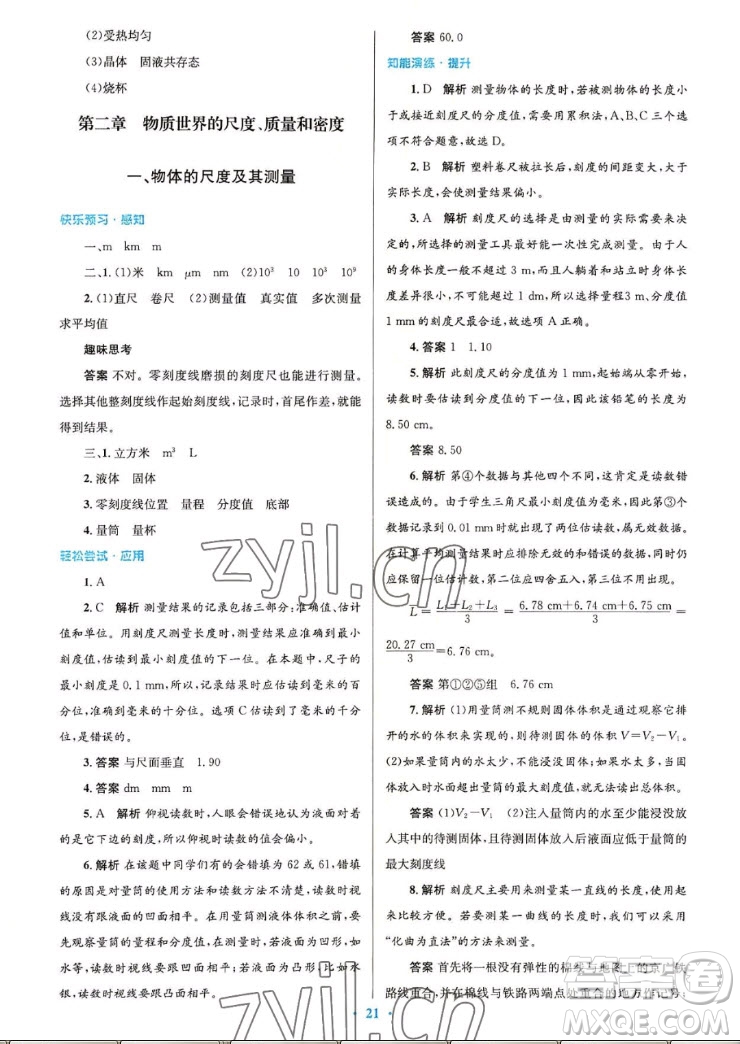 (2)受热均匀
(3)晶体　固液共存态
(4)烧杯
第二章　物质世界的尺度、质量和密度
一、物体的尺度及其测量
快乐预习·感知
一、m　km　m
二、1.(1)米　km　μm　nm　(2)10³　10　10⁶　10⁹
2.(1)直尺　卷尺　(2)测量值　真实值　多次测量
求平均值
趣味思考
答案　不对。零刻度线磨损的刻度尺也能进行测量。
选择其他整刻度线作起始刻度线,记录时,首尾作差,就能
得到结果。
三、1.立方米　m³　L
2.液体　固体
3.零刻度线位置　量程　分度值　底部
4.量筒　量杯
轻松尝试·应用
1.A
2.C　解析　测量结果的记录包括三部分:准确值、估计
值和单位。用刻度尺测量长度时,测量结果应准确到最小
刻度值,估读到最小刻度值的下一位。在本题中,尺子的
最小刻度是0.1 mm,所以,记录结果时应估读到毫米的百
分位,准确到毫米的十分位。选项C估读到了毫米的千分
位,是错误的。
3.答案　与尺面垂直　1.90
4.答案　dm　mm　m
5.A　解析　仰视读数时,人眼会错误地认为液面对着的
是它下边的刻度,所以读出的量筒的数值会偏小。
6.解析　在该题中同学们有的会错填为62或61,错填
的原因是对量筒的使用方法和读数方法不清楚,读数时视
线没有跟液面的凹面相平。在用量筒测量液体体积时,要
先观察量筒的量程和分度值,在测量时有的液面为凹形,如
水等,读数时视线要跟凹面相平;有的液面为凸形,如水
银,读数时视线要跟凸面相平。
答案　60.0
知能演练·提升
1.D　解析　测量物体的长度时,若被测物体的长度小
于或接近刻度尺的分度值,需要用累积法,A、B、C三个选
项不符合题意,故选D。
2.B　解析　塑料卷尺被拉长后,刻度的间距变大,与
实际长度相比,会使测量结果偏小。
3.A　解析　刻度尺的选择是由测量的实际需要来决
定,所选择的测量工具最好能一次性完成测量。由于人
的身体长度一般不超过3 m,而且人躺着和站立时身体长
度差异很小,不可能超过1 dm,所以选择量程3 m、分度值
1 mm的刻度尺最合适,故选项A正确。
4.答案　1　1.10
5.解析　此刻度尺的分度值为1 mm,起始端从零开始,
读数时要估读到分度值的下一位,因此该铅笔的长度为
8.50 cm。
答案　8.50
6.解析　第④个数据与其他四个不同,这肯定是读数错
误造成的。由于学生三角尺最小刻度值为毫米,因此第③个
数据记录到0.01 mm时出现了两位估读数,属无效数据。
在计算平均测量结果时应排除无效的和错误的数据,同时仍
应保留一位估计数,第二位应四舍五入,第三位不用求出。
L=(L₁+L₂+L₃)/3=(6.78 cm+6.74 cm+6.75 cm)/3=
20.27 cm/3=6.76 cm。
答案　第①②⑤组　6.76 cm
7.解析　(1)用量筒测不规则固体体积是通过观察它排
出的水的体积来实现的,则待测固体的体积V=V₂-V₁。
(2)如果量筒内的水太少,则不能浸没待测固体,如果太多,
放入时水面超出量筒的最大刻度值,就无法读出总体积。
答案　(1)V₂-V₁　(2)注入量筒内的水至少能浸没放
入其中的待测固体,且待测固体放入后液面应低于量筒的
最大刻度线
8.解析　刻度尺主要用来测量某一直线的长度,用起来
比较方便。若要测量某一曲线的长度时,我们可以采用
“化曲为直法”的方法来测量。
答案　首先将一根没有弹性的棉线与地图上的京广铁
路线重合,并在棉线与铁路两端点处重合的地方作记号;
21
zyjl.cn
zyjl.cn
答案圈
MXQE.COM